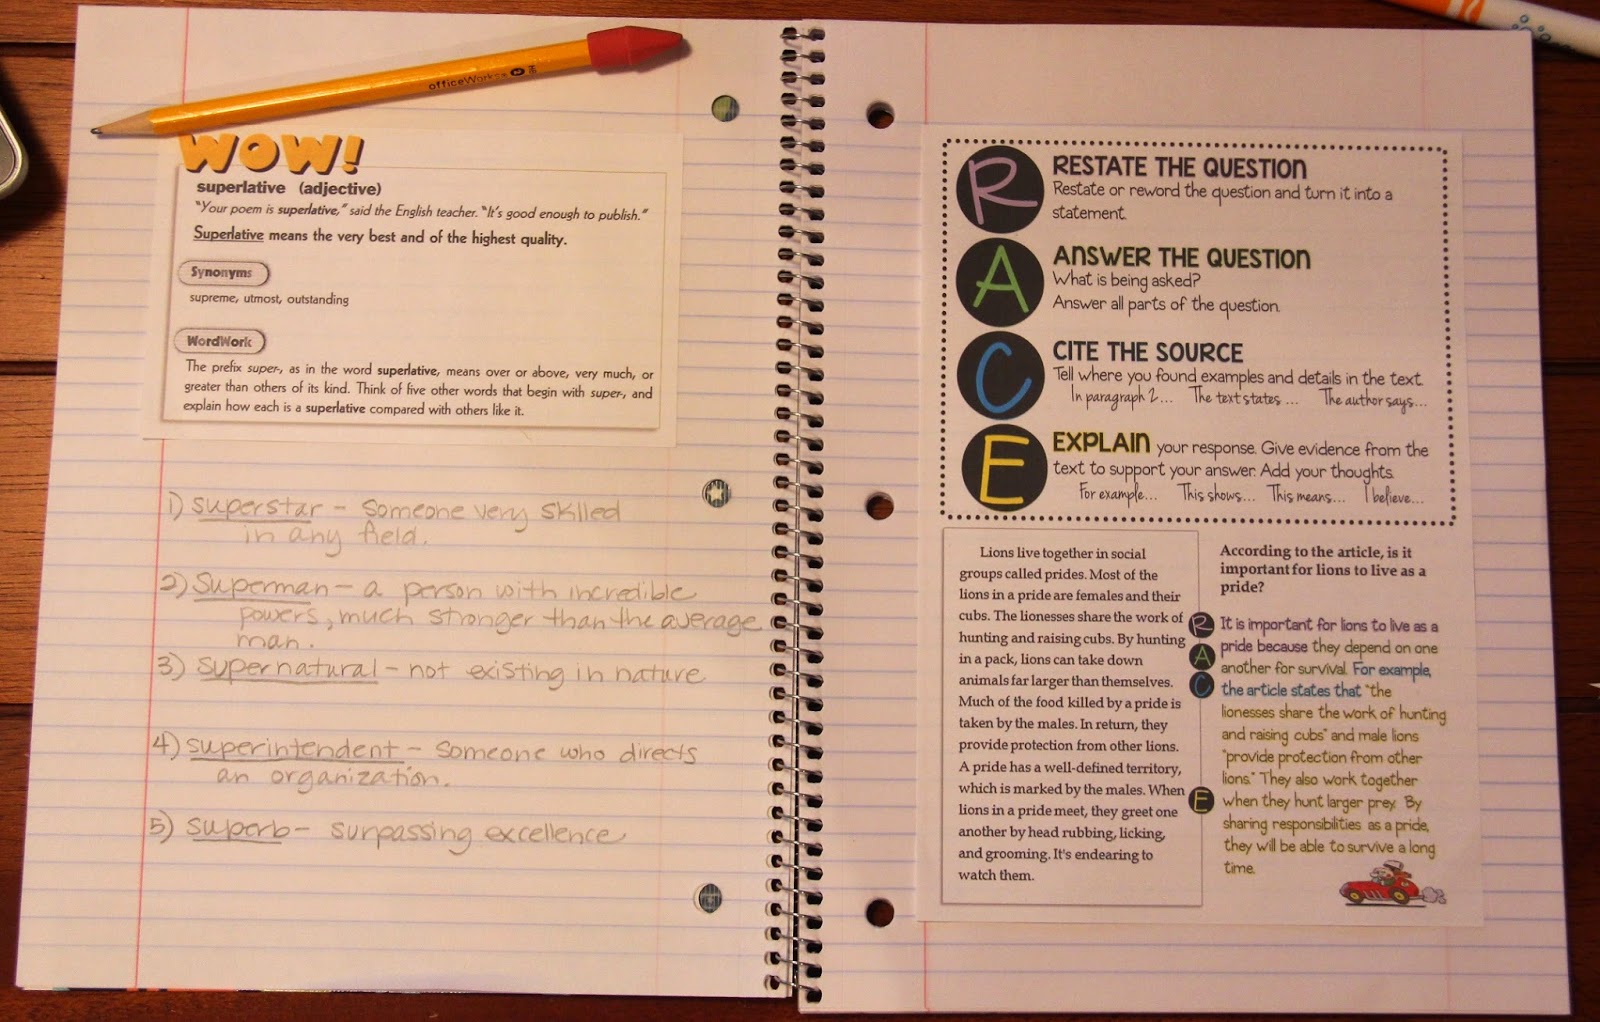 officeWorks
WOW!
superlative (adjective)
"Your poem is superlative," said the English teacher. "It's good enough to publish."
Superlative means the very best and of the highest quality.
Synonyms
supreme, utmost, outstanding
WordWork
The prefix super-, as in the word superlative, means over or above, very much, or
greater than others of its kind. Think of five other words that begin with super-, and
explain how each is a superlative compared with others like it.
1) superstar - someone very skilled
in any field.
2) Superman - a person with incredible
powers, much stronger than the average
man.
3) supernatural - not existing in nature
4) superintendent - someone who directs
an organization.
5) superb - surpassing excellence
R
RESTATE THE QUESTION
Restate or reword the question and turn it into a
statement.
A
ANSWER THE QUESTION
What is being asked?
Answer all parts of the question.
C
CITE THE SOURCE
Tell where you found examples and details in the text.
In paragraph 2... The text states ... The author says...
E
EXPLAIN your response. Give evidence from the
text to support your answer. Add your thoughts.
For example... This shows... This means... I believe...
Lions live together in social
groups called prides. Most of the
lions in a pride are females and their
cubs. The lionesses share the work of
hunting and raising cubs. By hunting
in a pack, lions can take down
animals far larger than themselves.
Much of the food killed by a pride is
taken by the males. In return, they
provide protection from other lions.
A pride has a well-defined territory,
which is marked by the males. When
lions in a pride meet, they greet one
another by head rubbing, licking,
and grooming. It's endearing to
watch them.
According to the article, is it
important for lions to live as a
pride?
R It is important for lions to live as a
pride because they depend on one
A another for survival. For example,
C the article states that "the
lionesses share the work of hunting
and raising cubs" and male lions
"provide protection from other
lions." They also work together
E when they hunt larger prey. By
sharing responsibilities as a pride,
they will be able to survive a long
time.